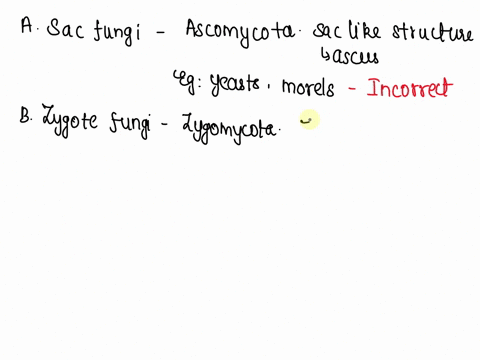 A. Sac fungi - Ascomycota. sac like structure
↳ascus
Eg: yeasts, morels - Incorrect
B. Zygote fungi - Zygomycota.